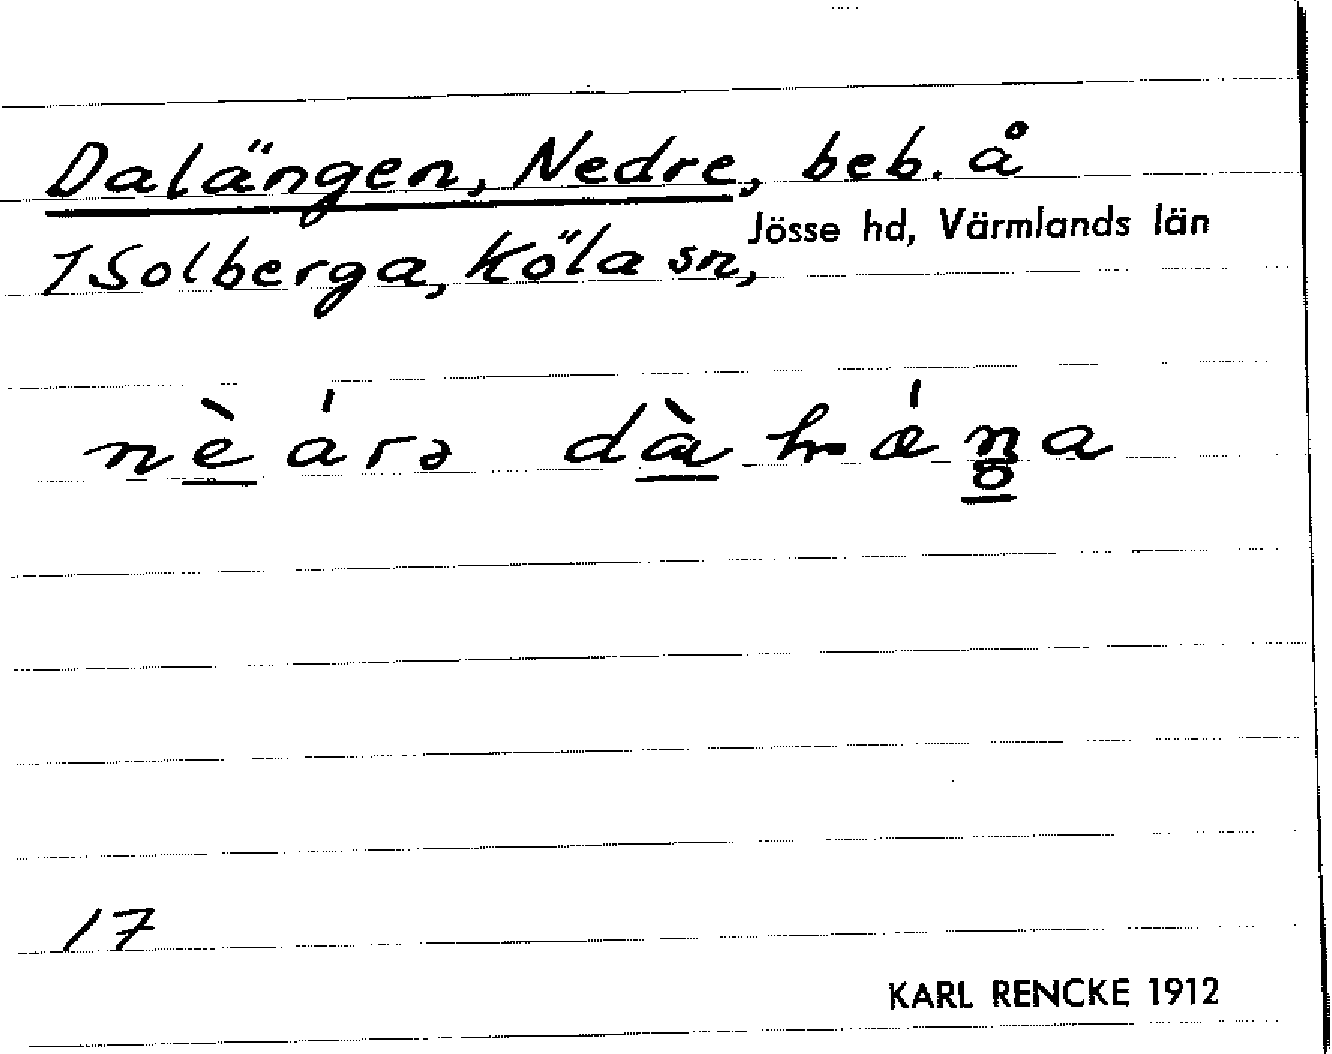 Dalängen, Nedre, beb. å
1 Solberga, Köla sn, Jösse hd, Värmlands län
17
KARL RENCKE 1912